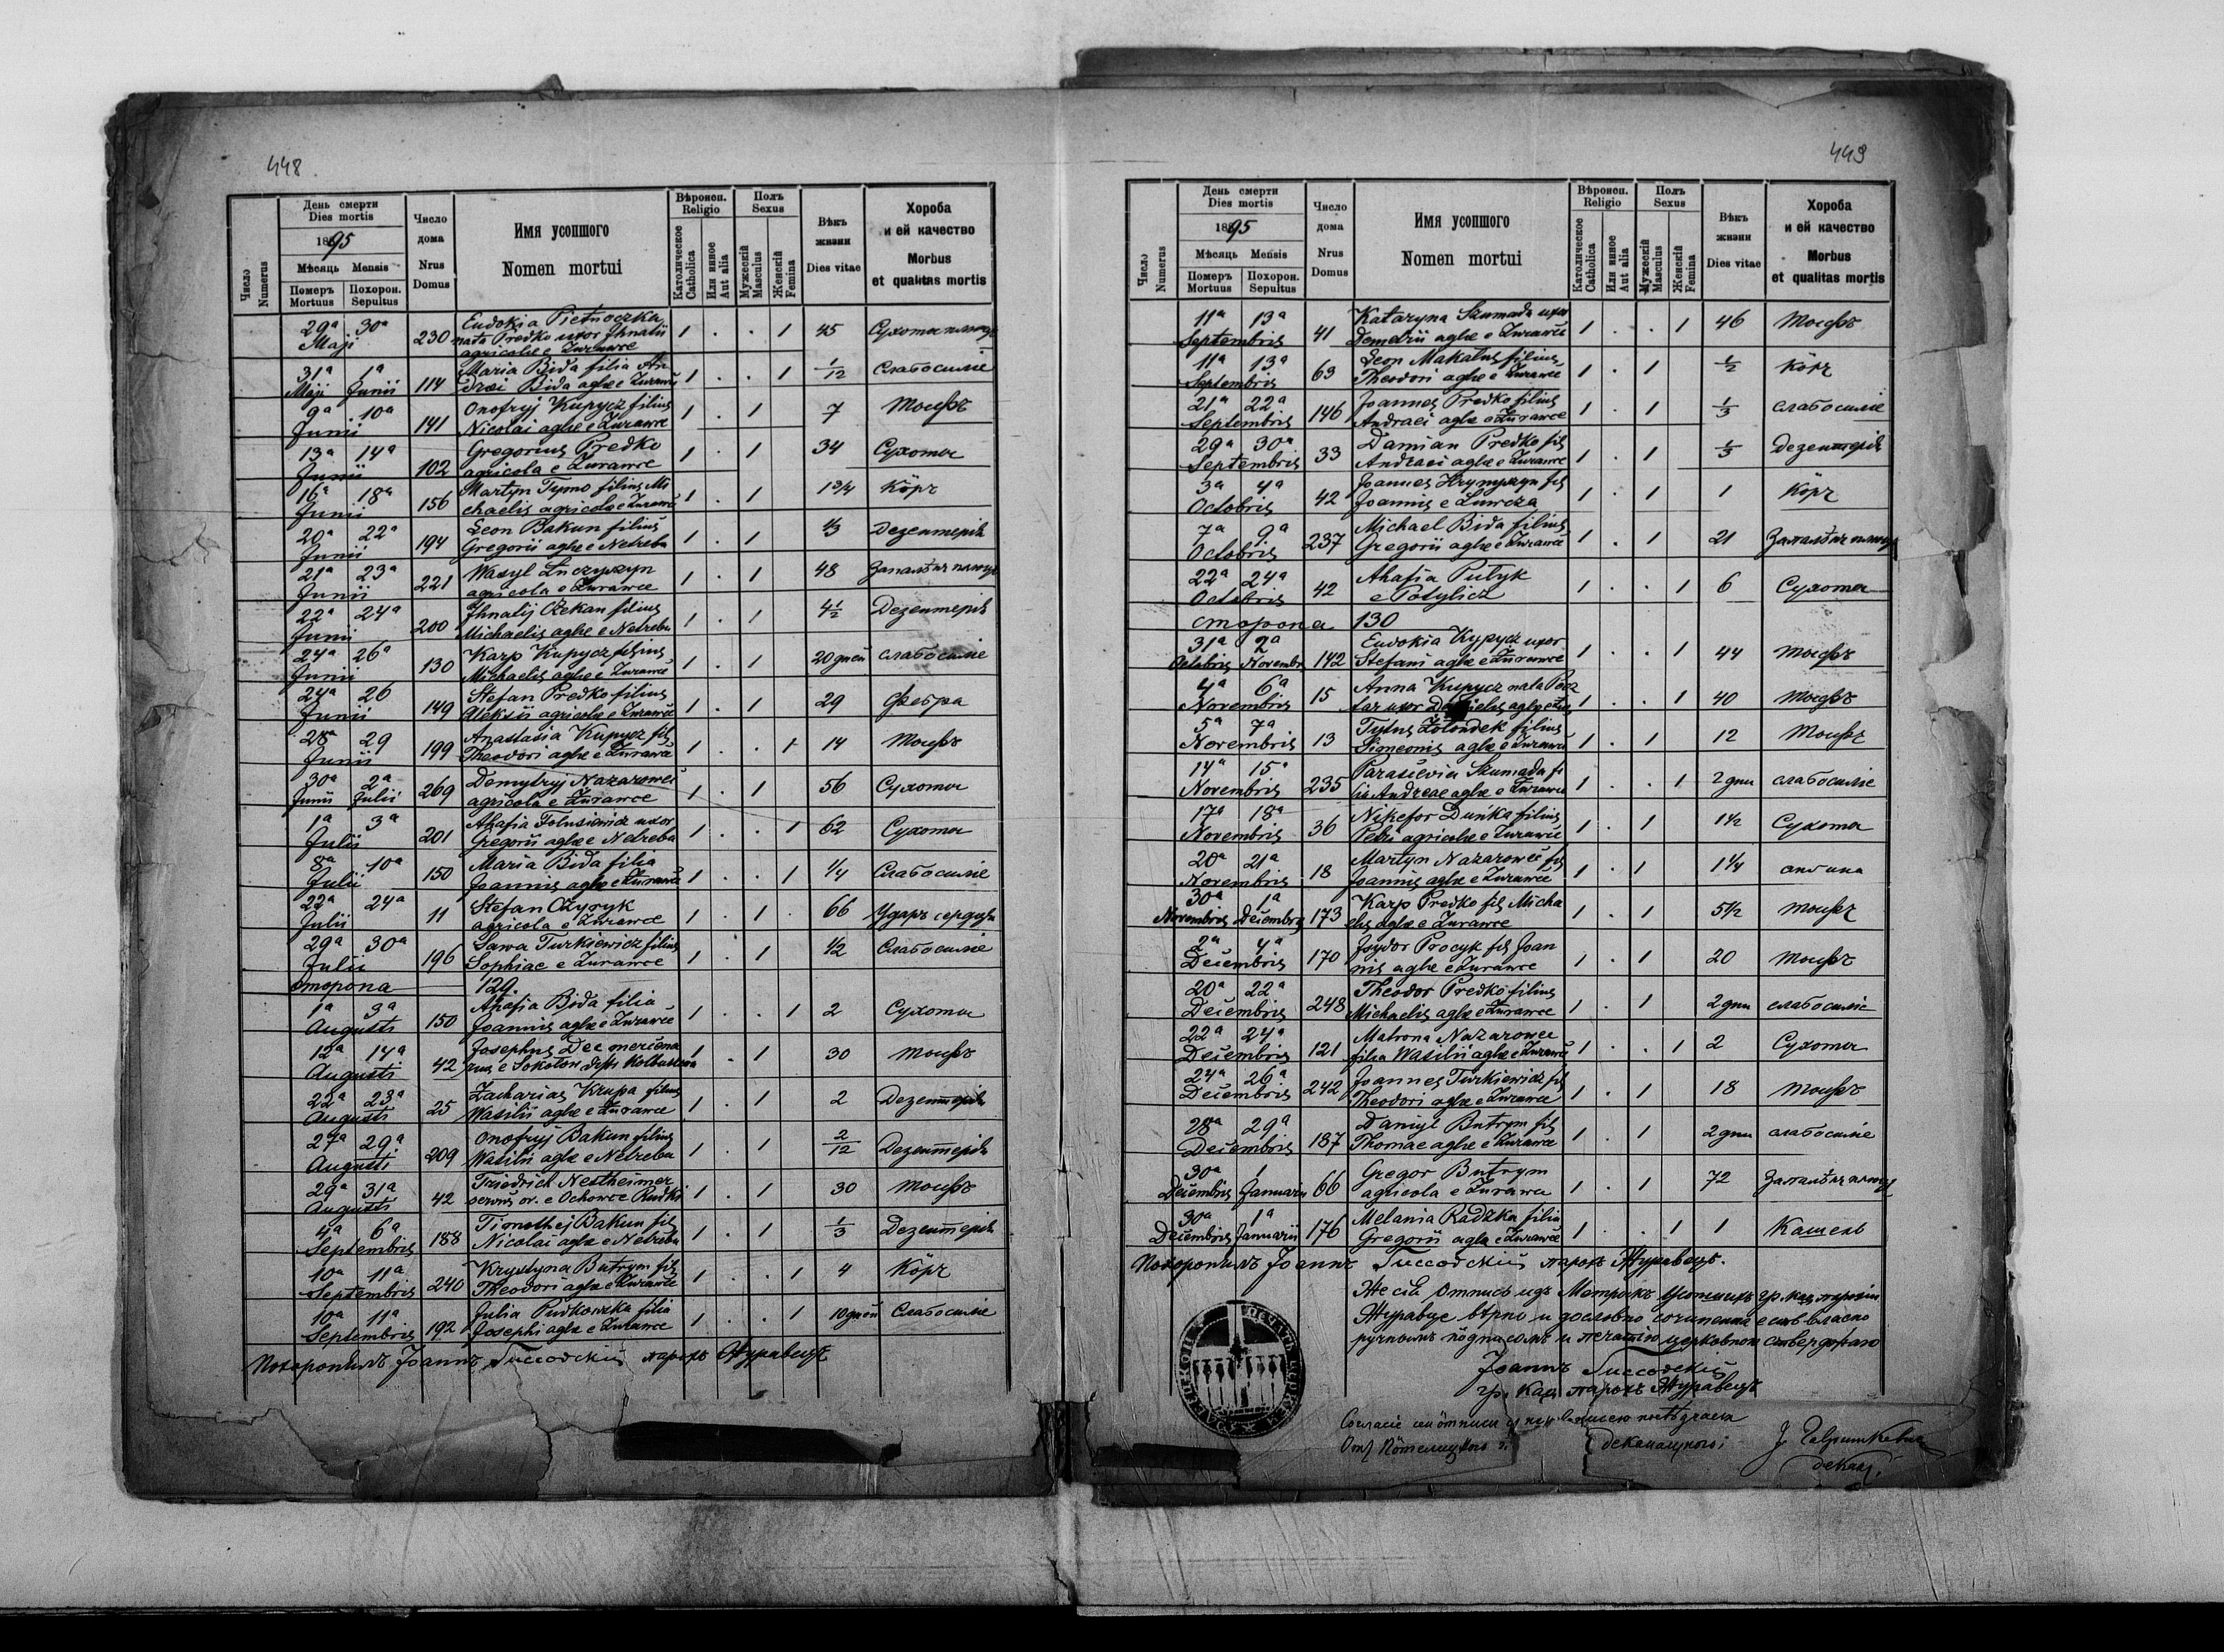 448
Число Numerus
День смерти
Dies mortis
1895
Мѣсяць Mensis
Померъ Mortuus
Похорон. Sepultus
Число дома
Nrus Domus
Имя усопшого
Nomen mortui
Вѣроисп.
Religio
Католическое Catholica
Или инное Aut alia
Полъ
Sexus
Мужескій Masculus
Женскій Femina
Вѣкъ жизни
Dies vitae
Хороба и ей качество
Morbus et qualitas mortis
29ª 30ª Eudokia Pietnoczka
Maji 230 nata Predko uxor Ihnatii 1 . . 1 45 Сухоты
agricolae e Żurawce
31ª 1ª Maria Bida filia An
Maji Junii 114 draei Bida aglae e Żurawce 1 . . 1 1/12 Слабосиліе
9ª 10ª Onofryj Kupycz filius
Junii 141 Nicolai aglae e Żurawce 1 . 1 7 Тонфъ
13ª 14ª Gregorius Predko
Junii 102 agricola e Żurawce 1 . 1 34 Сухоты
16ª 18ª Martyn Tymo filius Mi
Junii 156 chaelis agricolae e Żurawce 1 . 1 1 3/4 Кôрь
20ª 22ª Leon Bakun filius
Junii 194 Gregorii aglae e Netreba 1 . 1 1/3 Дезентерія
21ª 23ª Wasyl
Junii 221 agricola e Żurawce 1 . 1 48 Запалѣнь
22ª 24ª Ihnatij Czekan filius
Junii 200 Michaelis aglae e Netreba 1 . 1 4 1/2 Дезентерія
24ª 26ª Karp Kupycz filius
Junii 130 Michaelis aglae e Żurawce 1 . 1 20 дней слабосиліе
24ª 26 Stefan Predko filius
Junii 149 Aleksii agricolae e Żurawce 1 . 1 29 Фебра
28ª 29 Anastasia Kupycz fil
Junii 199 Theodori aglae e Żurawce 1 . . 1 14 Тонфъ
30ª 2ª Demytryj Nazarowec
Junii Julii 269 agricola e Żurawce 1 . 1 56 Сухоты
1ª 3ª Ahafia Tolusiewicz uxor
Julii 201 Gregorii aglae e Netreba 1 . . 1 62 Сухоты
8ª 10ª Maria Bida filia
Julii 150 Joannis aglae e Żurawce 1 . . 1 1/4 Слабосиліе
22ª 24ª Stefan Czyryk
Julii 11 agricola e Żurawce 1 . 1 . 66 Ударъ сердця
29ª 30ª Sawa Turkiewicz filius
Julii 196 Sophiae e Żurawce 1 . 1 1/2 Слабосиліе
сторона 129.
1ª 3ª Ahafia Bida filia
Augusti 150 Joannis aglae e Żurawce 1 . . 1 2 Сухоты
12ª 14ª Josephus Dec mercena
Augusti 42 rius e Sokołow 1 . 1 30 Тонфъ
22ª 23ª Zacharias Krupa filius
Augusti 25 Wasilii aglae e Żurawce 1 . 1 2 Дезентерія
27ª 29ª Onofryj Bakun filius
Augusti 209 Wasilii aglae e Netreba 1 . 1 2/12 Дезентерія
29ª 31ª Friedrich Nestheimer
Augusti 42 1 . 1 30 Тонфъ
4ª 6ª Timothej Bakun fil
Septembris 188 Nicolai aglae e Netreba 1 . 1 1/3 Дезентерія
10ª 11ª Krystyna Butrym fil
Septembris 240 Theodori aglae e Żurawce 1 . . 1 4 Кôрь
10ª 11ª Julia Pudkowka filia
Septembris 192 Josephi aglae e Żurawce 1 . . 1 10 дней Слабосиліе
Похоронилъ Іоаннъ парохъ Журавецъ
449
Число Numerus
День смерти
Dies mortis
1895
Мѣсяць Mensis
Померъ Mortuus
Похорон. Sepultus
Число дома
Nrus Domus
Имя усопшого
Nomen mortui
Вѣроисп.
Religio
Католическое Catholica
Или инное Aut alia
Полъ
Sexus
Мужескій Masculus
Женскій Femina
Вѣкъ жизни
Dies vitae
Хороба и ей качество
Morbus et qualitas mortis
11ª 13ª Kataryna Szumada uxor
Septembris 41 Demetrii aglae e Żurawce 1 . . 1 46 Тонфъ
11ª 13ª Leon Makałus filius
Septembris 63 Theodori aglae e Żurawce 1 . 1 1/2 Кôрь
21ª 22ª Joannes Predko filius
Septembris 146 Andraei aglae e Żurawce 1 . 1 1/3 слабосиліе
29ª 30ª Damian Predko fil
Septembris 33 Andraei aglae e Żurawce 1 . 1 1/3 Дезентерія
3ª 4ª Joannes Hrympzyn fil
Octobris 42 Joannis 1 . 1 1 Кôрь
7ª 9ª Michael Bida filius
Octobris 237 Gregorii aglae e Żurawce 1 . 1 21 Запалѣнь
22ª 24ª Ahafia Putyk
Octobris 42 e Potylicz 1 . . 1 6 Сухоты
сторона 130
31ª 2ª Eudokia Kupycz uxor
Octobris Novembris 142 Stefani aglae e Żurawce 1 . . 1 44 Тонфъ
4ª 6ª Anna Kupycz nata
Novembris 15 uxor Danielis aglae 1 . . 1 40 Тонфъ
5ª 7ª Tytus Żołondek filius
Novembris 13 Simeonis aglae e Żurawce 1 . 1 12 Тонфъ
14ª 15ª Parascevia Szumada fi
Novembris 235 lia Andreae aglae e Żurawce 1 . . 1 2 дни слабосиліе
17ª 18ª Nikefor Duńka filius
Novembris 36 Petri agricolae e Żurawce 1 . 1 1 1/2 Сухоты
20ª 21ª Martyn Nazarowec fil
Novembris 18 Joannis aglae e Żurawce 1 . 1 1 1/4 ангина
30ª 1ª Karp Predko fil Micha
Novembris Decembris 173 elis aglae e Żurawce 1 . 1 5 1/2 Тонфъ
2ª 4ª Isydor Procyk fil Joan
Decembris 170 nis aglae e Żurawce 1 . 1 20 Тонфъ
20ª 22ª Theodor Predko filius
Decembris 248 Michaelis aglae e Żurawce 1 . 1 2 дни слабосиліе
22ª 24ª Matrona Nazarowec
Decembris 121 filia Wasilii aglae e Żurawce 1 . . 1 2 Сухоты
24ª 26ª Joannes Turkiewicz fil
Decembris 242 Theodori aglae e Żurawce 1 . 1 18 Тонфъ
28ª 29ª Daniyl Butrym fil
Decembris 187 Thomae aglae e Żurawce 1 . 1 2 дни слабосиліе
30ª 1 Gregor Butrym
Decembris Januarii 66 agricola e Żurawce 1 . 1 72 Запалѣнь
30ª 1ª Melania Radzka filia
Decembris Januarii 176 Gregorii aglae e Żurawce 1 . . 1 1 Кашель
Похоронилъ Іоаннъ парохъ Журавецъ.
Же сей отписъ изъ Метрикъ Усопшихъ гр. кат. парохіи
Журавце вѣрно и дословно сочиненый есть власно
ручнымъ пôдписомъ и печатію церковною ствердфаю
Іоаннъ
гр. кат. парохъ Журавецъ
деканальной
декан.